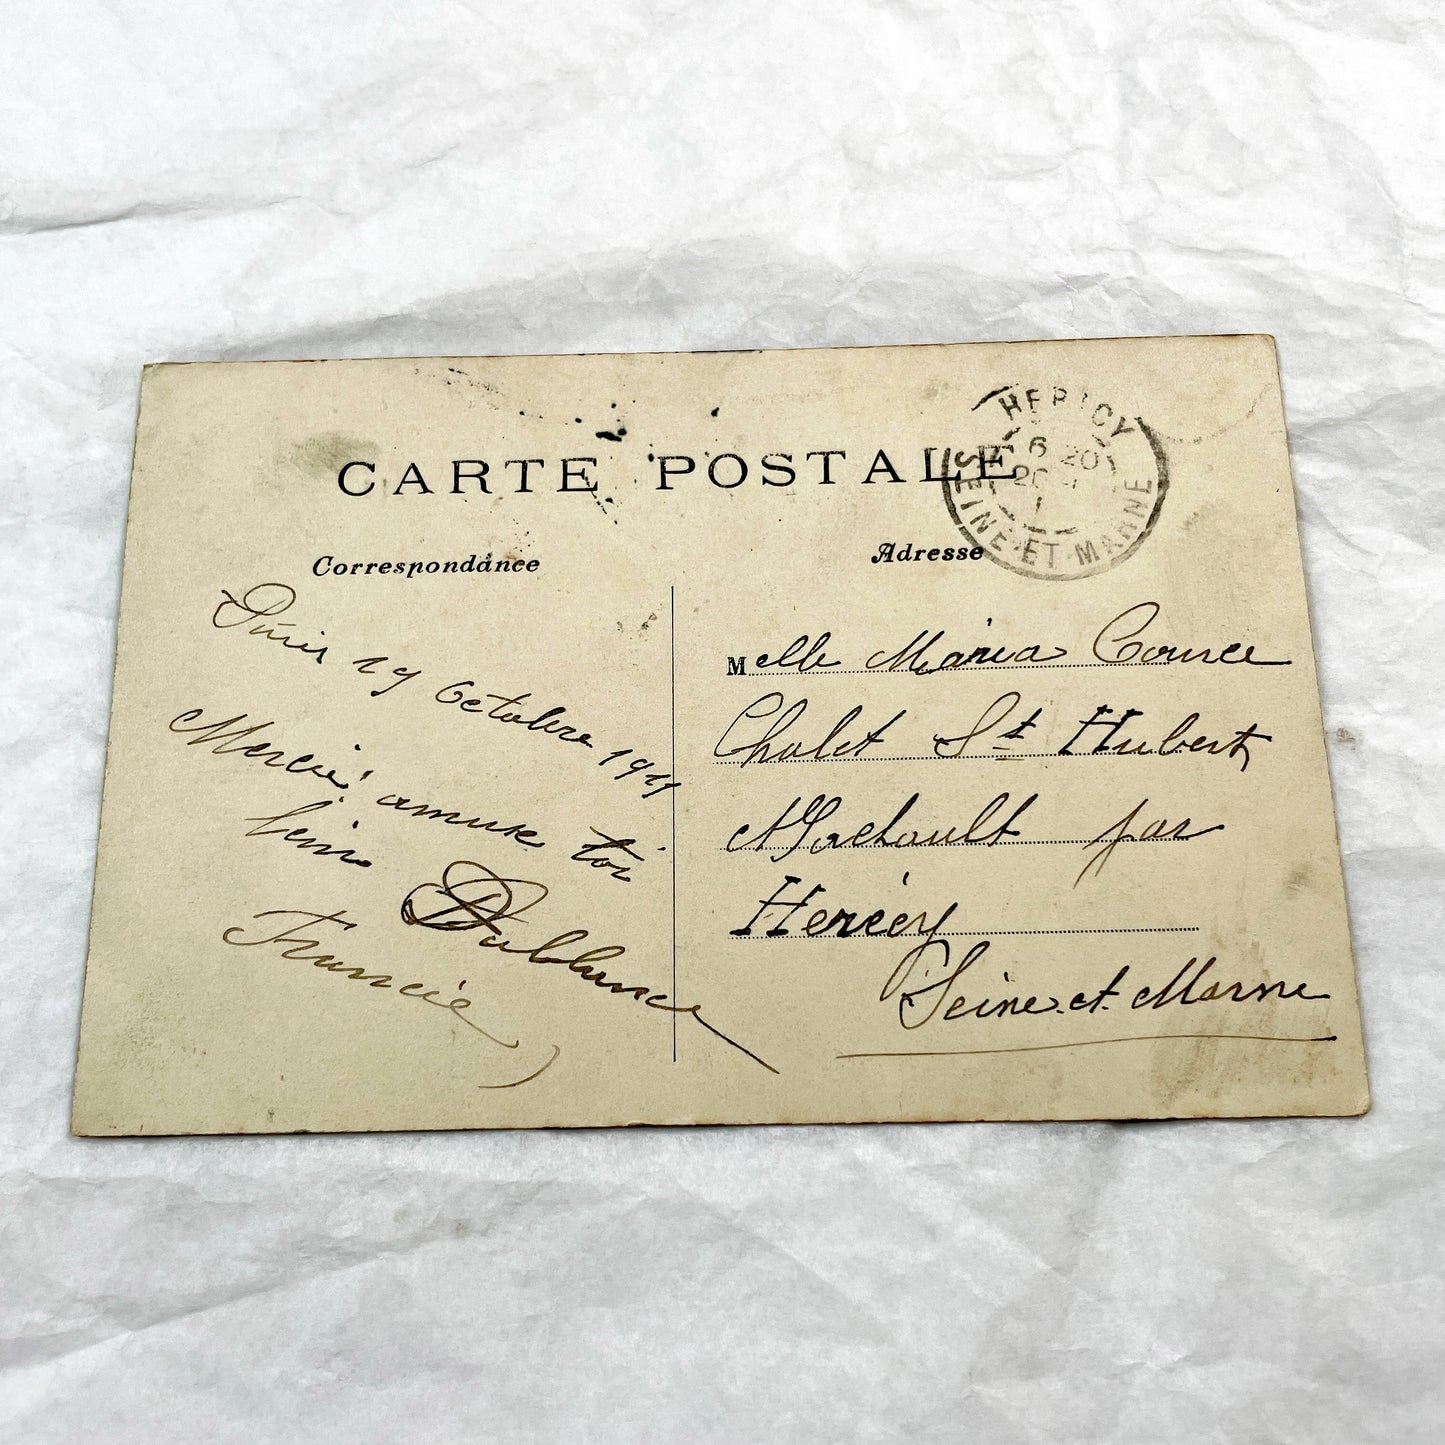 CARTE POSTALE
HERICY
6 20
20
SEINE-ET-MARNE
Correspondance
Paris 19 Octobre 1911
Mercie, amuse toi
bien
Dablance
Francie
Adresse
Melle Maria Cource
Chalet St Hubert
Machault par
Herécy
Seine.et.Marne